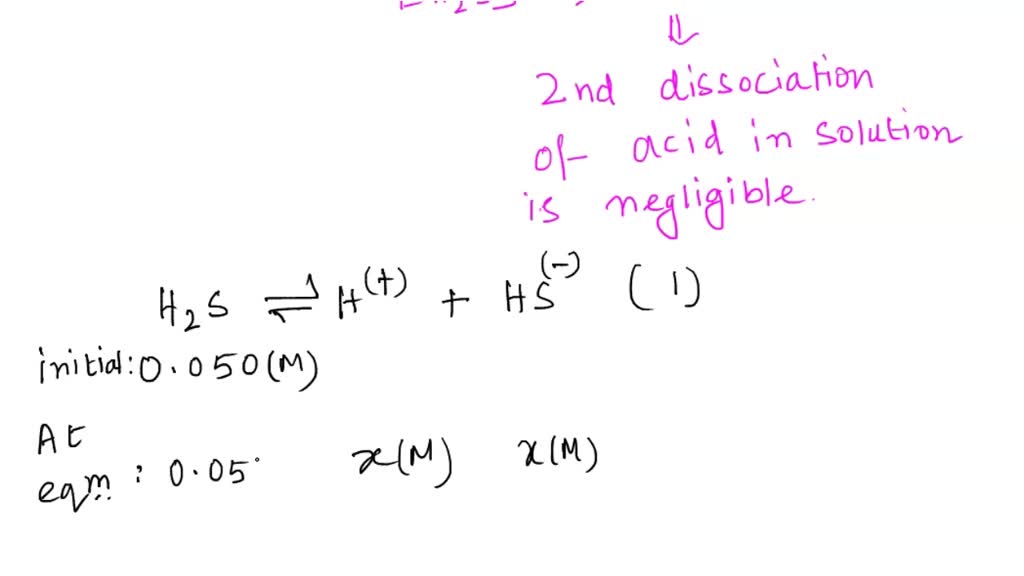 2nd dissociation
of acid in solution
is negligible.
H₂S ⇌ H⁽⁺⁾ + HS⁽⁻⁾ (1)
initial: 0.050(M)
At
eqm: 0.05 x(M) x(M)